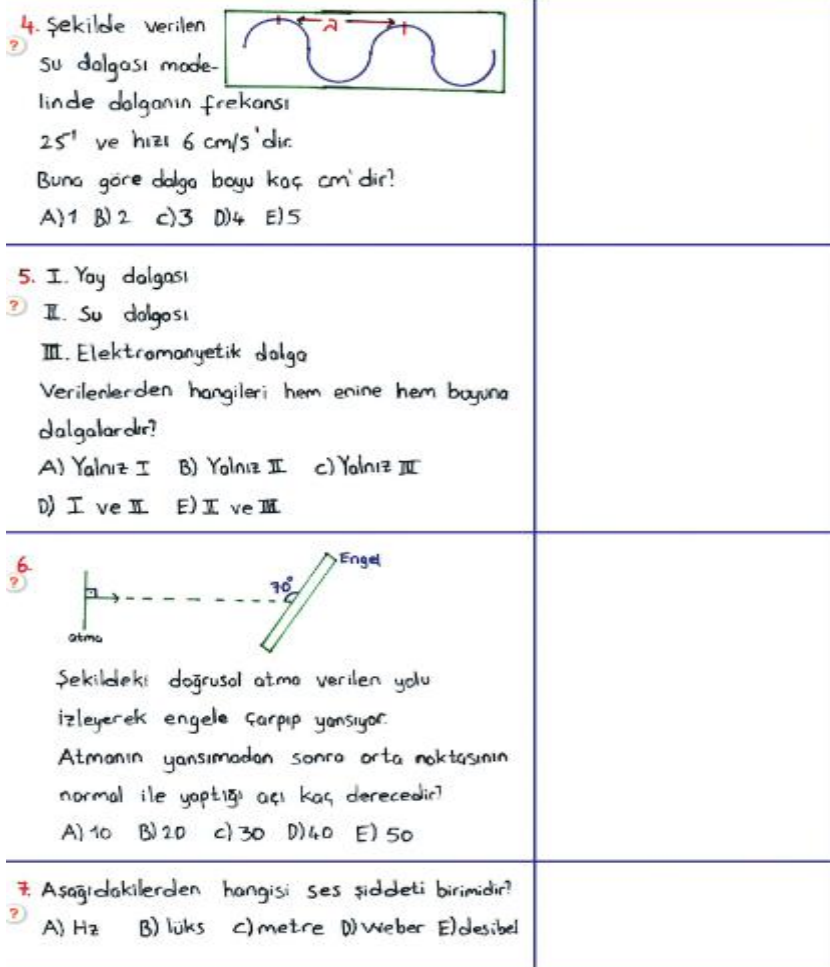 4. Şekilde verilen
λ
?
su dalgası mode-
linde dalganın frekansı
2s⁻¹ ve hızı 6 cm/s'dir.
Buna göre dalga boyu kaç cm'dir?
A)1 B)2 C)3 D)4 E)5
5. I. Yay dalgası
?
II. Su dalgası
III. Elektromanyetik dalga
Verilenlerden hangileri hem enine hem boyuna
dalgalardır?
A) Yalnız I B) Yalnız II C) Yalnız III
D) I ve II E) II ve III
6.
?
70°
Engel
atma
Şekildeki doğrusal atma verilen yolu
izleyerek engele çarpıp yansıyor.
Atmanın yansımadan sonra orta noktasının
normal ile yaptığı açı kaç derecedir?
A) 10 B) 20 C) 30 D) 40 E) 50
7. Aşağıdakilerden hangisi ses şiddeti birimidir?
?
A) Hz B) lüks C) metre D) weber E) desibel